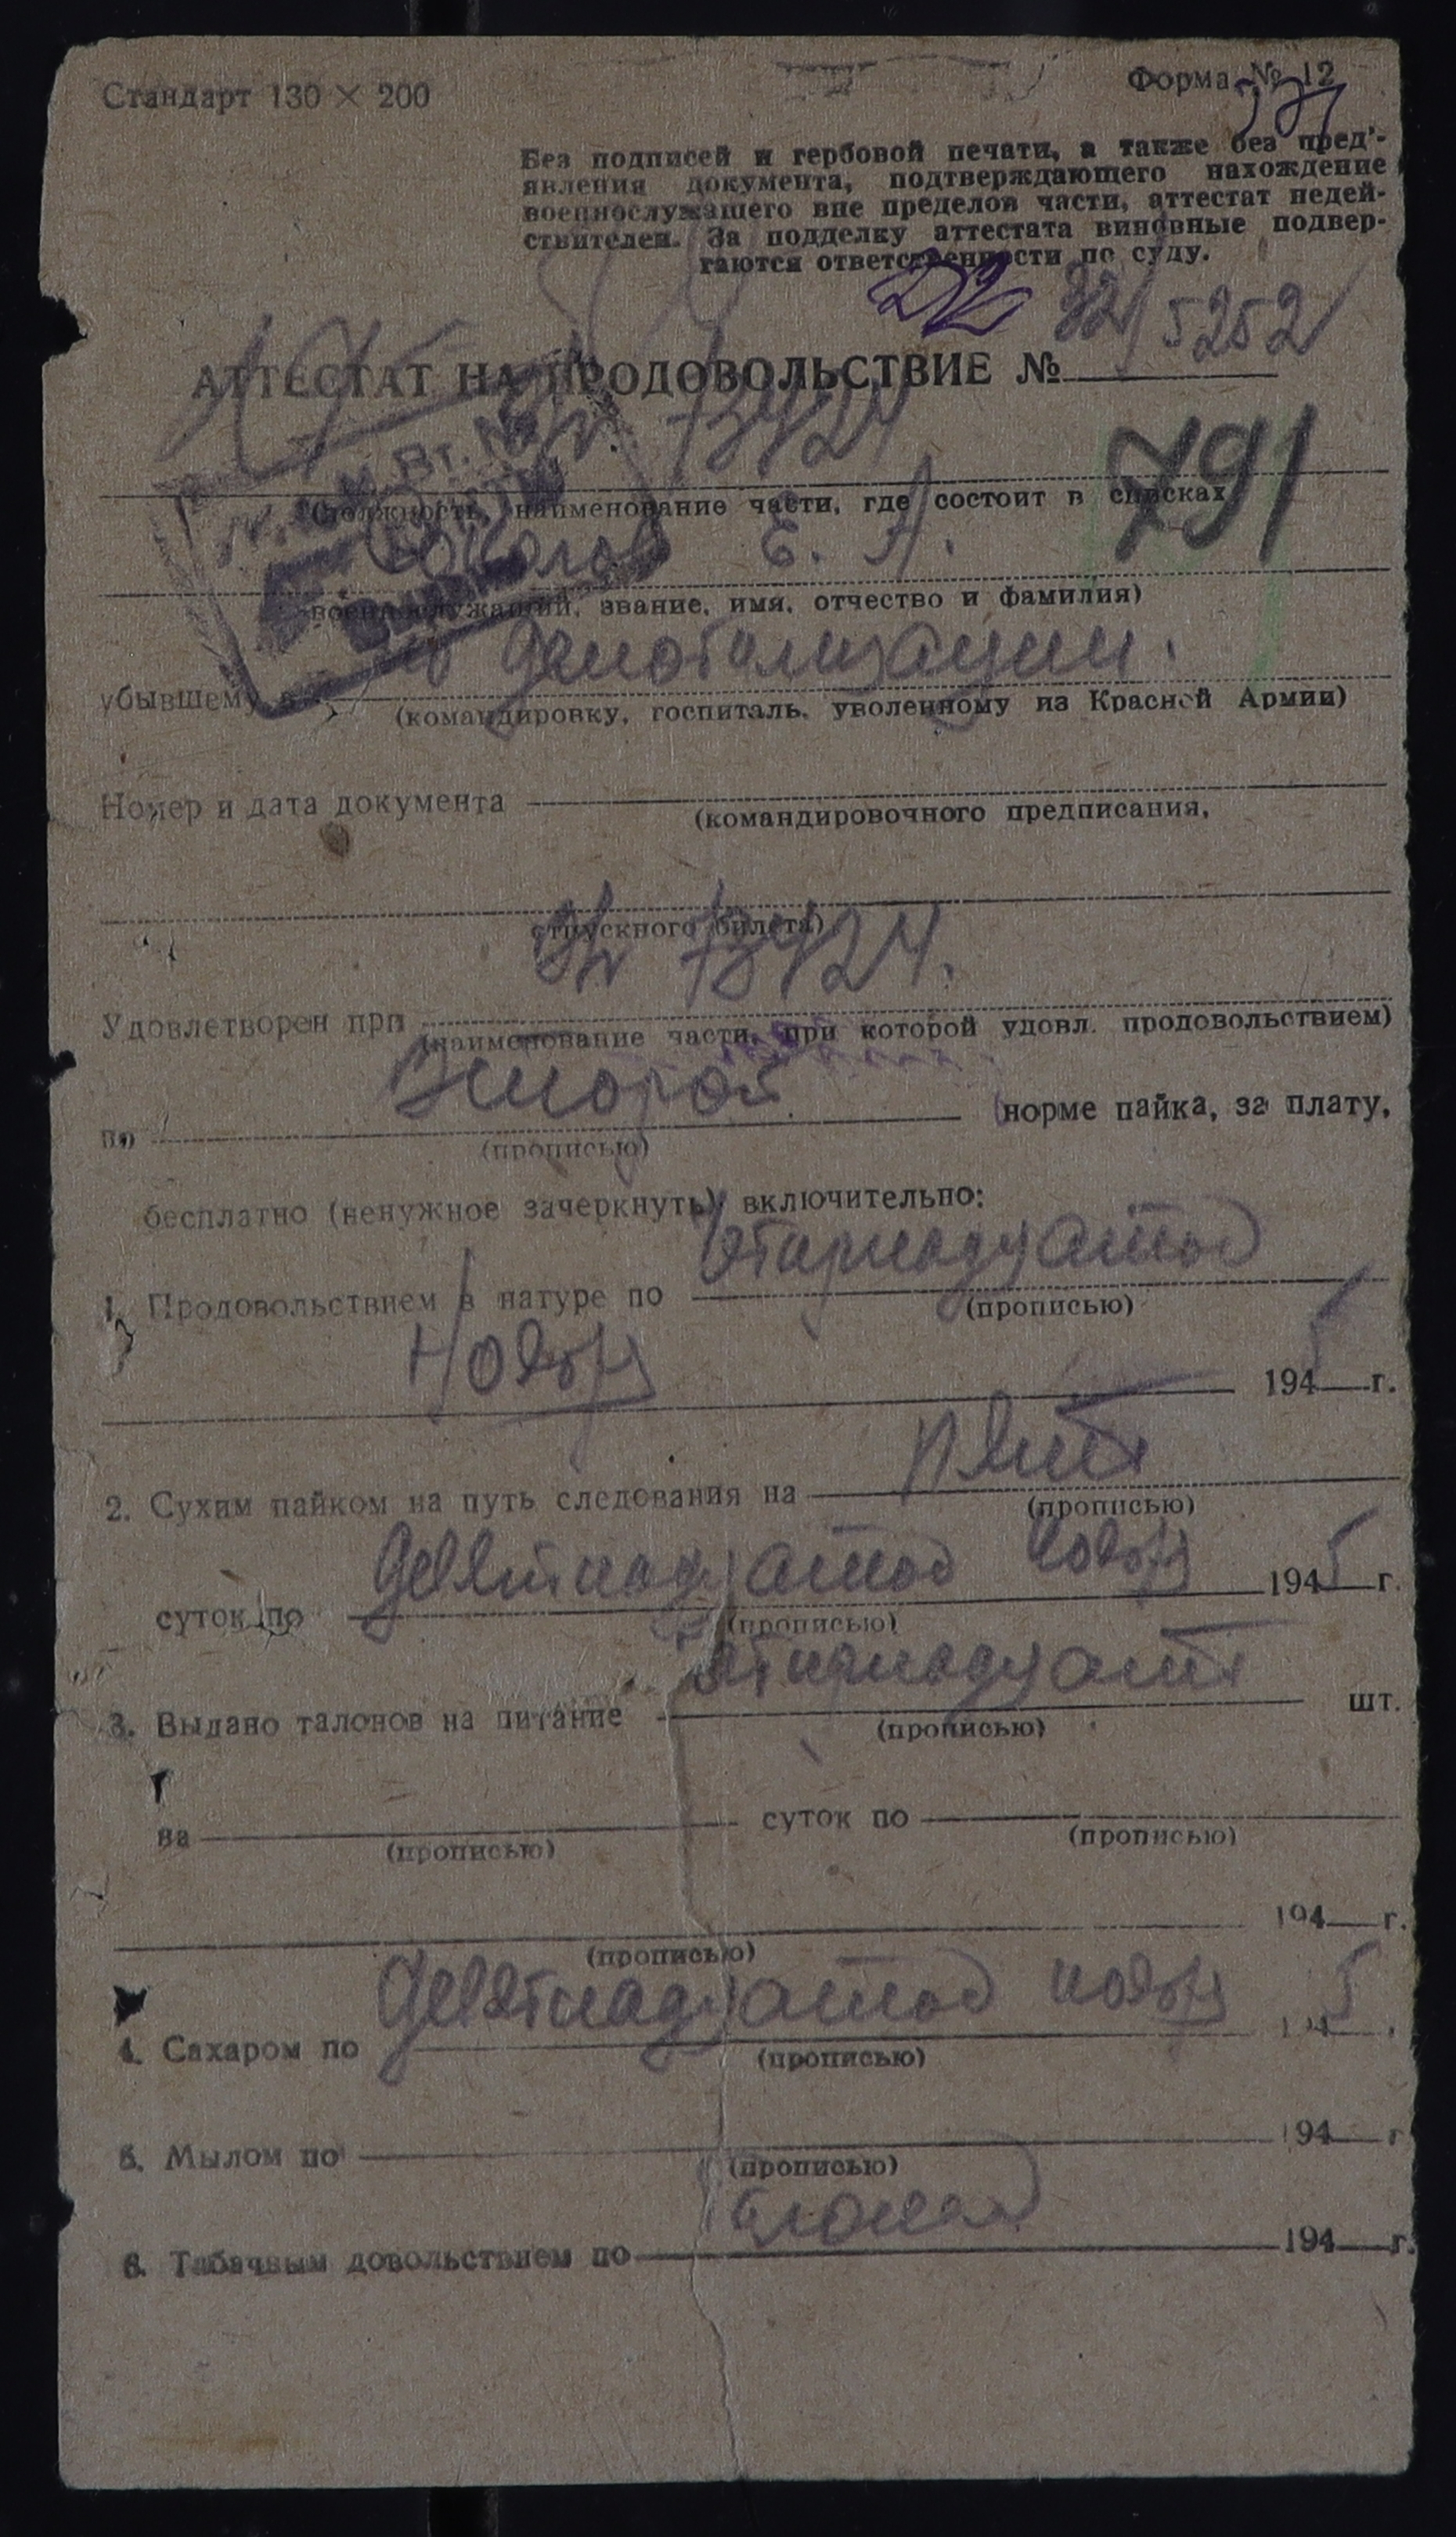 Стандарт 130 × 200
Форма № 12
Без подписей и гербовой печати, а также без пред'-
явления документа, подтверждающего нахождение
военнослужащего вне пределов части, аттестат недей-
ствителен. За подделку аттестата виновные подвер-
гаются ответственности по суду.
АТТЕСТАТ НА ПРОДОВОЛЬСТВИЕ № 32/5252
73424
791
(должность, наименование части, где состоит в списках
Е. А.
военнослужащий, звание, имя, отчество и фамилия)
убывшему в по демобилизации.
(командировку, госпиталь, уволенному из Красной Армии)
Номер и дата документа
(командировочного предписания,
отпускного билета)
73424.
Удовлетворен при
(наименование части, при которой удовл. продовольствием)
Второй
по норме пайка, за плату,
(прописью)
бесплатно (ненужное зачеркнуть) включительно:
1. Продовольствием в натуре по
(прописью)
Ноября 1945 г.
2. Сухим пайком на путь следования на пять
(прописью)
суток по девятнадцатое ноября 1945 г.
(прописью)
3. Выдано талонов на питание шт.
(прописью)
на суток по
(прописью) (прописью)
194 г.
(прописью)
4. Сахаром по девятнадцатое ноября 1945
(прописью)
5. Мылом по 194 г
(прописью)
6. Табачным довольствием по 194 г.